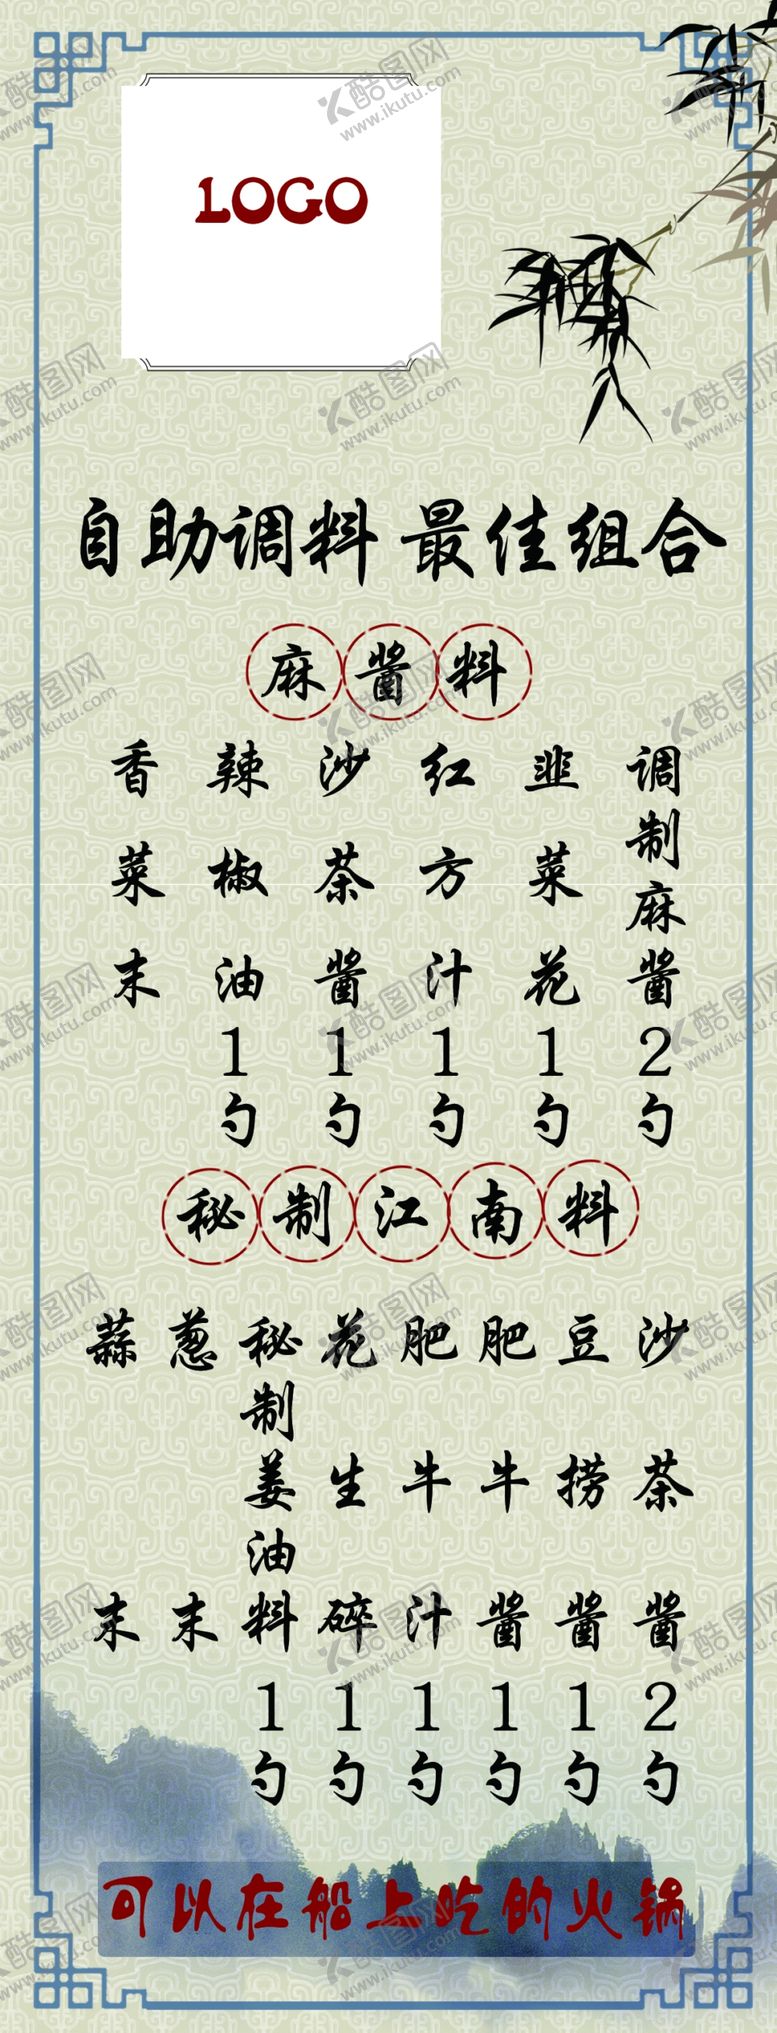 LOGO
自助调料 最佳组合
麻酱料
调制麻酱2勺
韭菜花1勺
红方汁1勺
沙茶酱1勺
辣椒油1勺
香菜末
秘制江南料
沙茶酱2勺
豆捞酱1勺
肥牛酱1勺
肥牛汁1勺
花生碎1勺
秘制姜油料1勺
葱末
蒜末
可以在船上吃的火锅
酷图网
www.ikutu.com